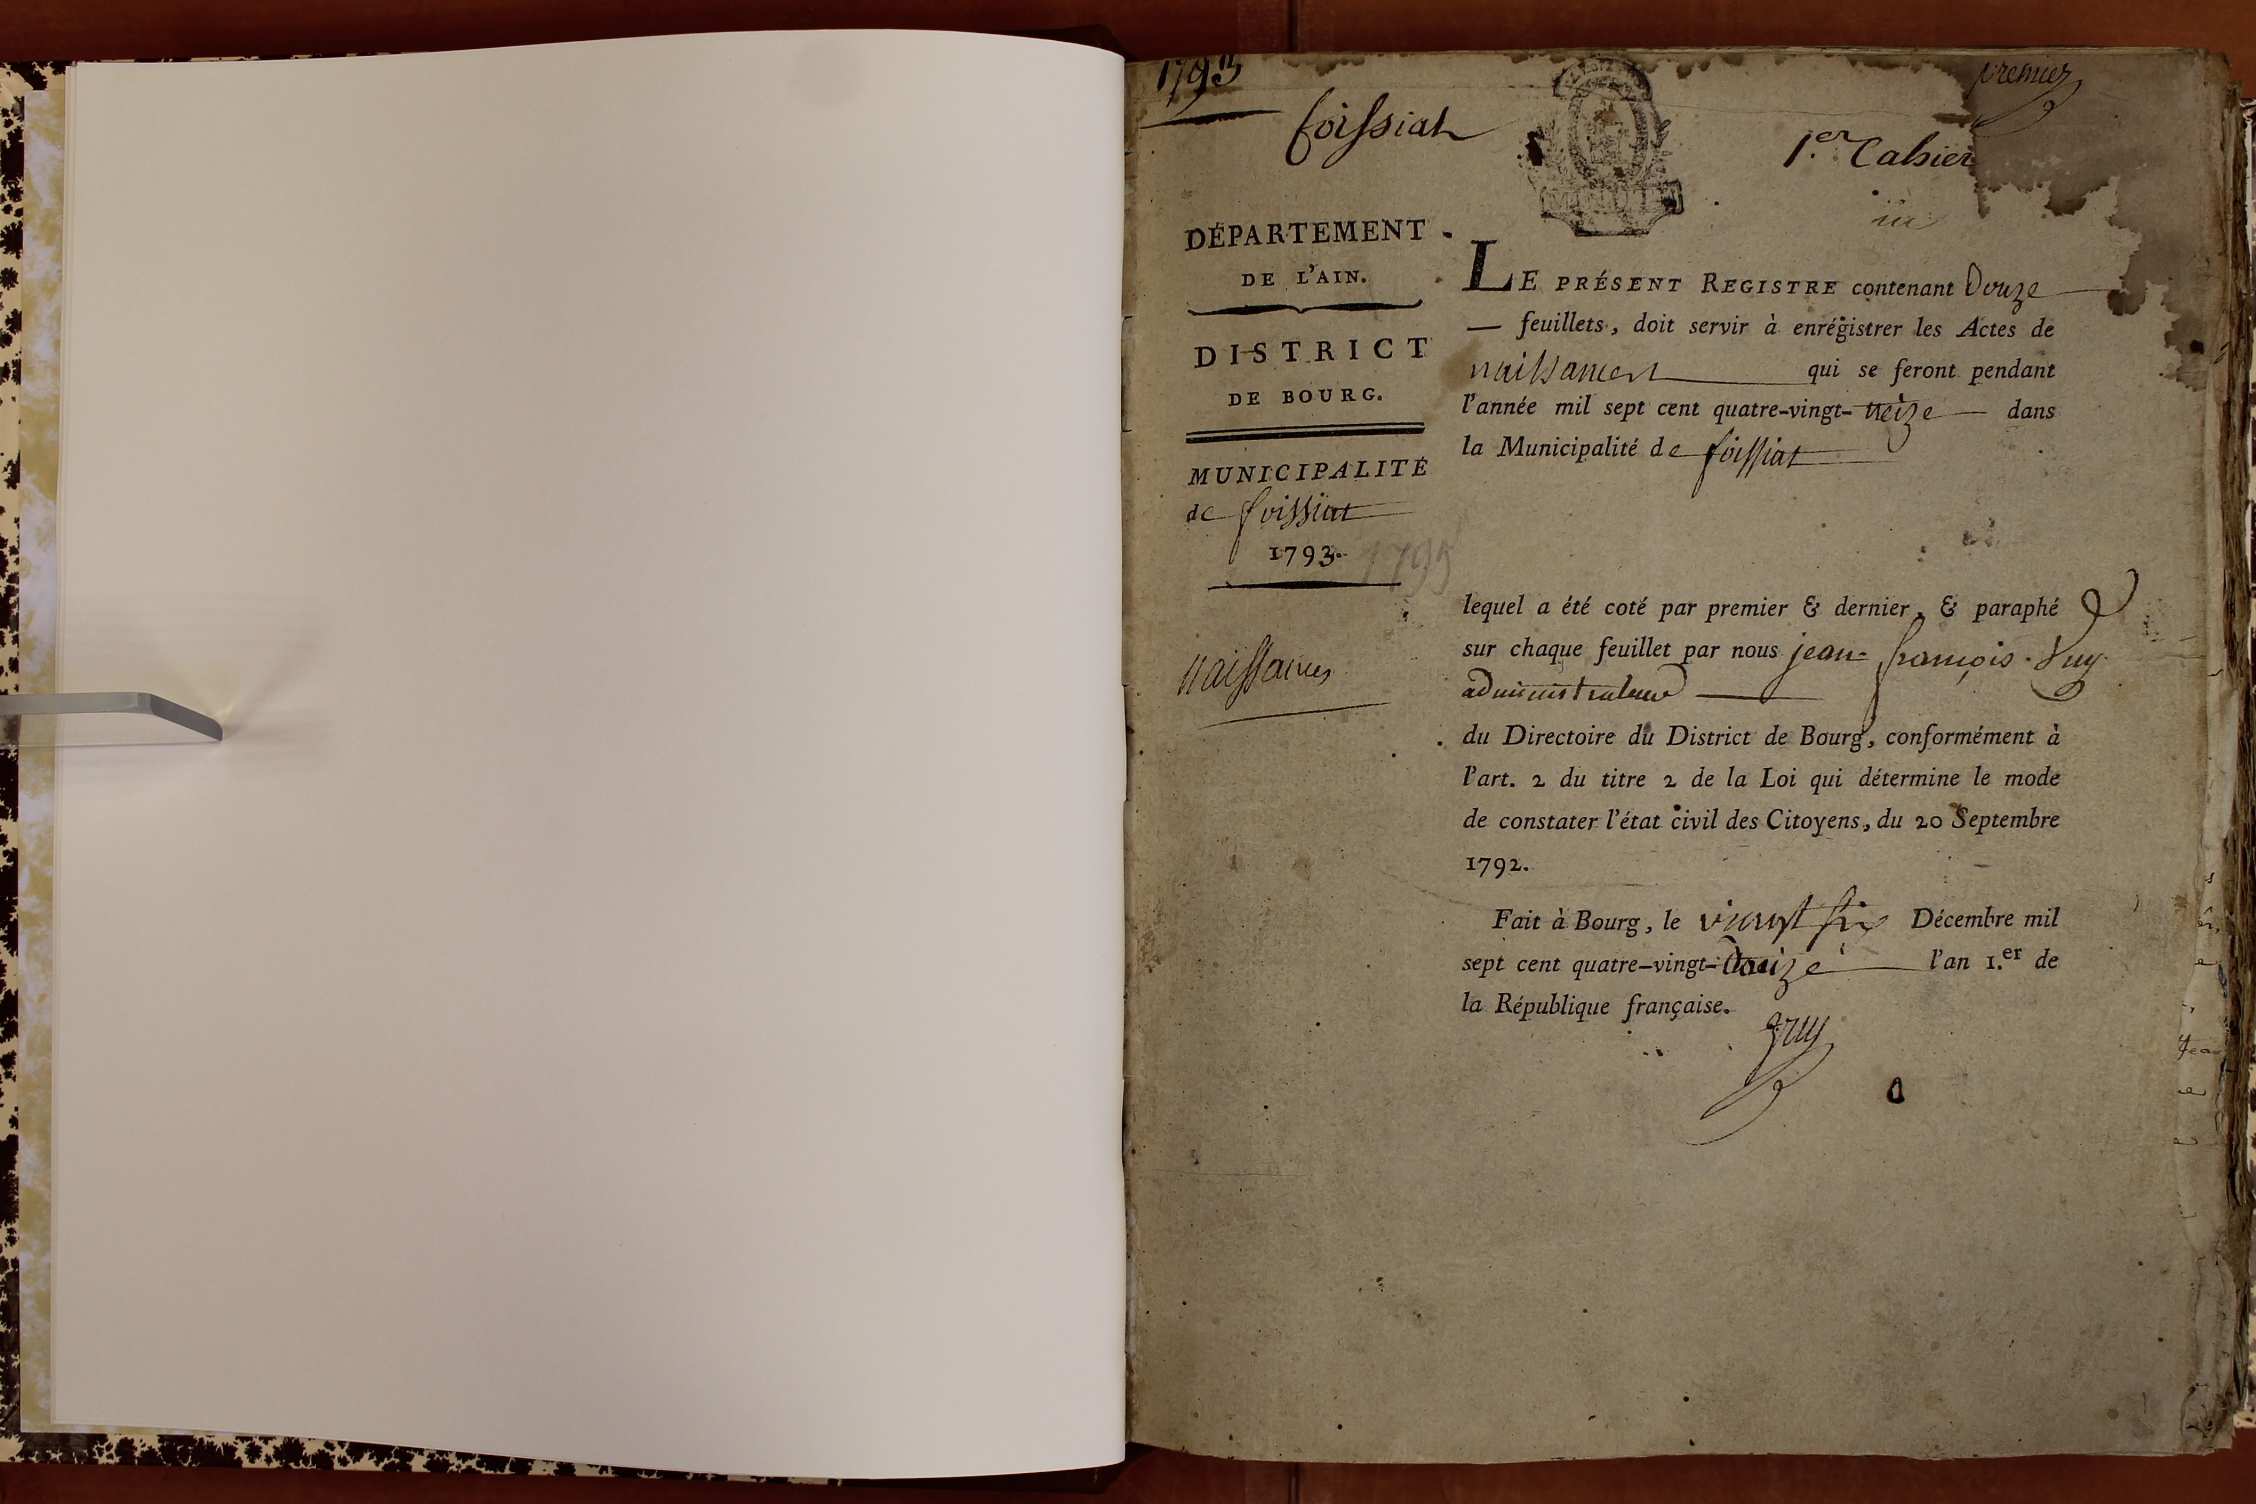 1793
foissiat
premier
1.er Cahier
DÉPARTEMENT
DE L'AIN.
DISTRICT
DE BOURG.
MUNICIPALITÉ
de foissiat
1793.
1793
naissances
LE PRÉSENT REGISTRE contenant Douze
— feuillets, doit servir à enrégistrer les Actes de
naissances qui se feront pendant
l'année mil sept cent quatre-vingt-treize — dans
la Municipalité de foissiat
lequel a été coté par premier & dernier, & paraphé
sur chaque feuillet par nous jean françois
administrateur
du Directoire du District de Bourg, conformément à
l'art. 2 du titre 2 de la Loi qui détermine le mode
de constater l'état civil des Citoyens, du 20 Septembre
1792.
Fait à Bourg, le vingt six Décembre mil
sept cent quatre-vingt-douze l'an 1.er de
la République française.